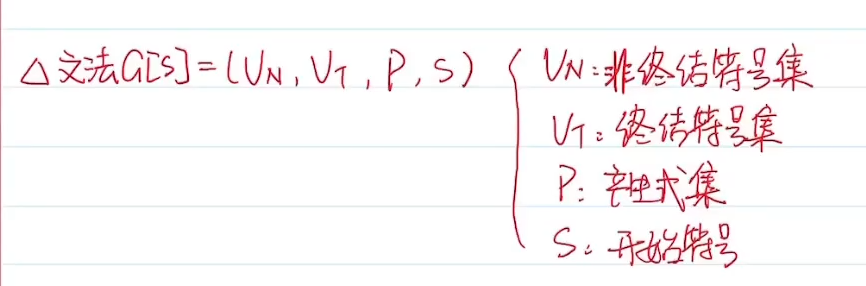 △文法G[S]=(VN,VT,P,S)
VN:非终结符号集
VT:终结符号集
P:产生式集
S:开始符号